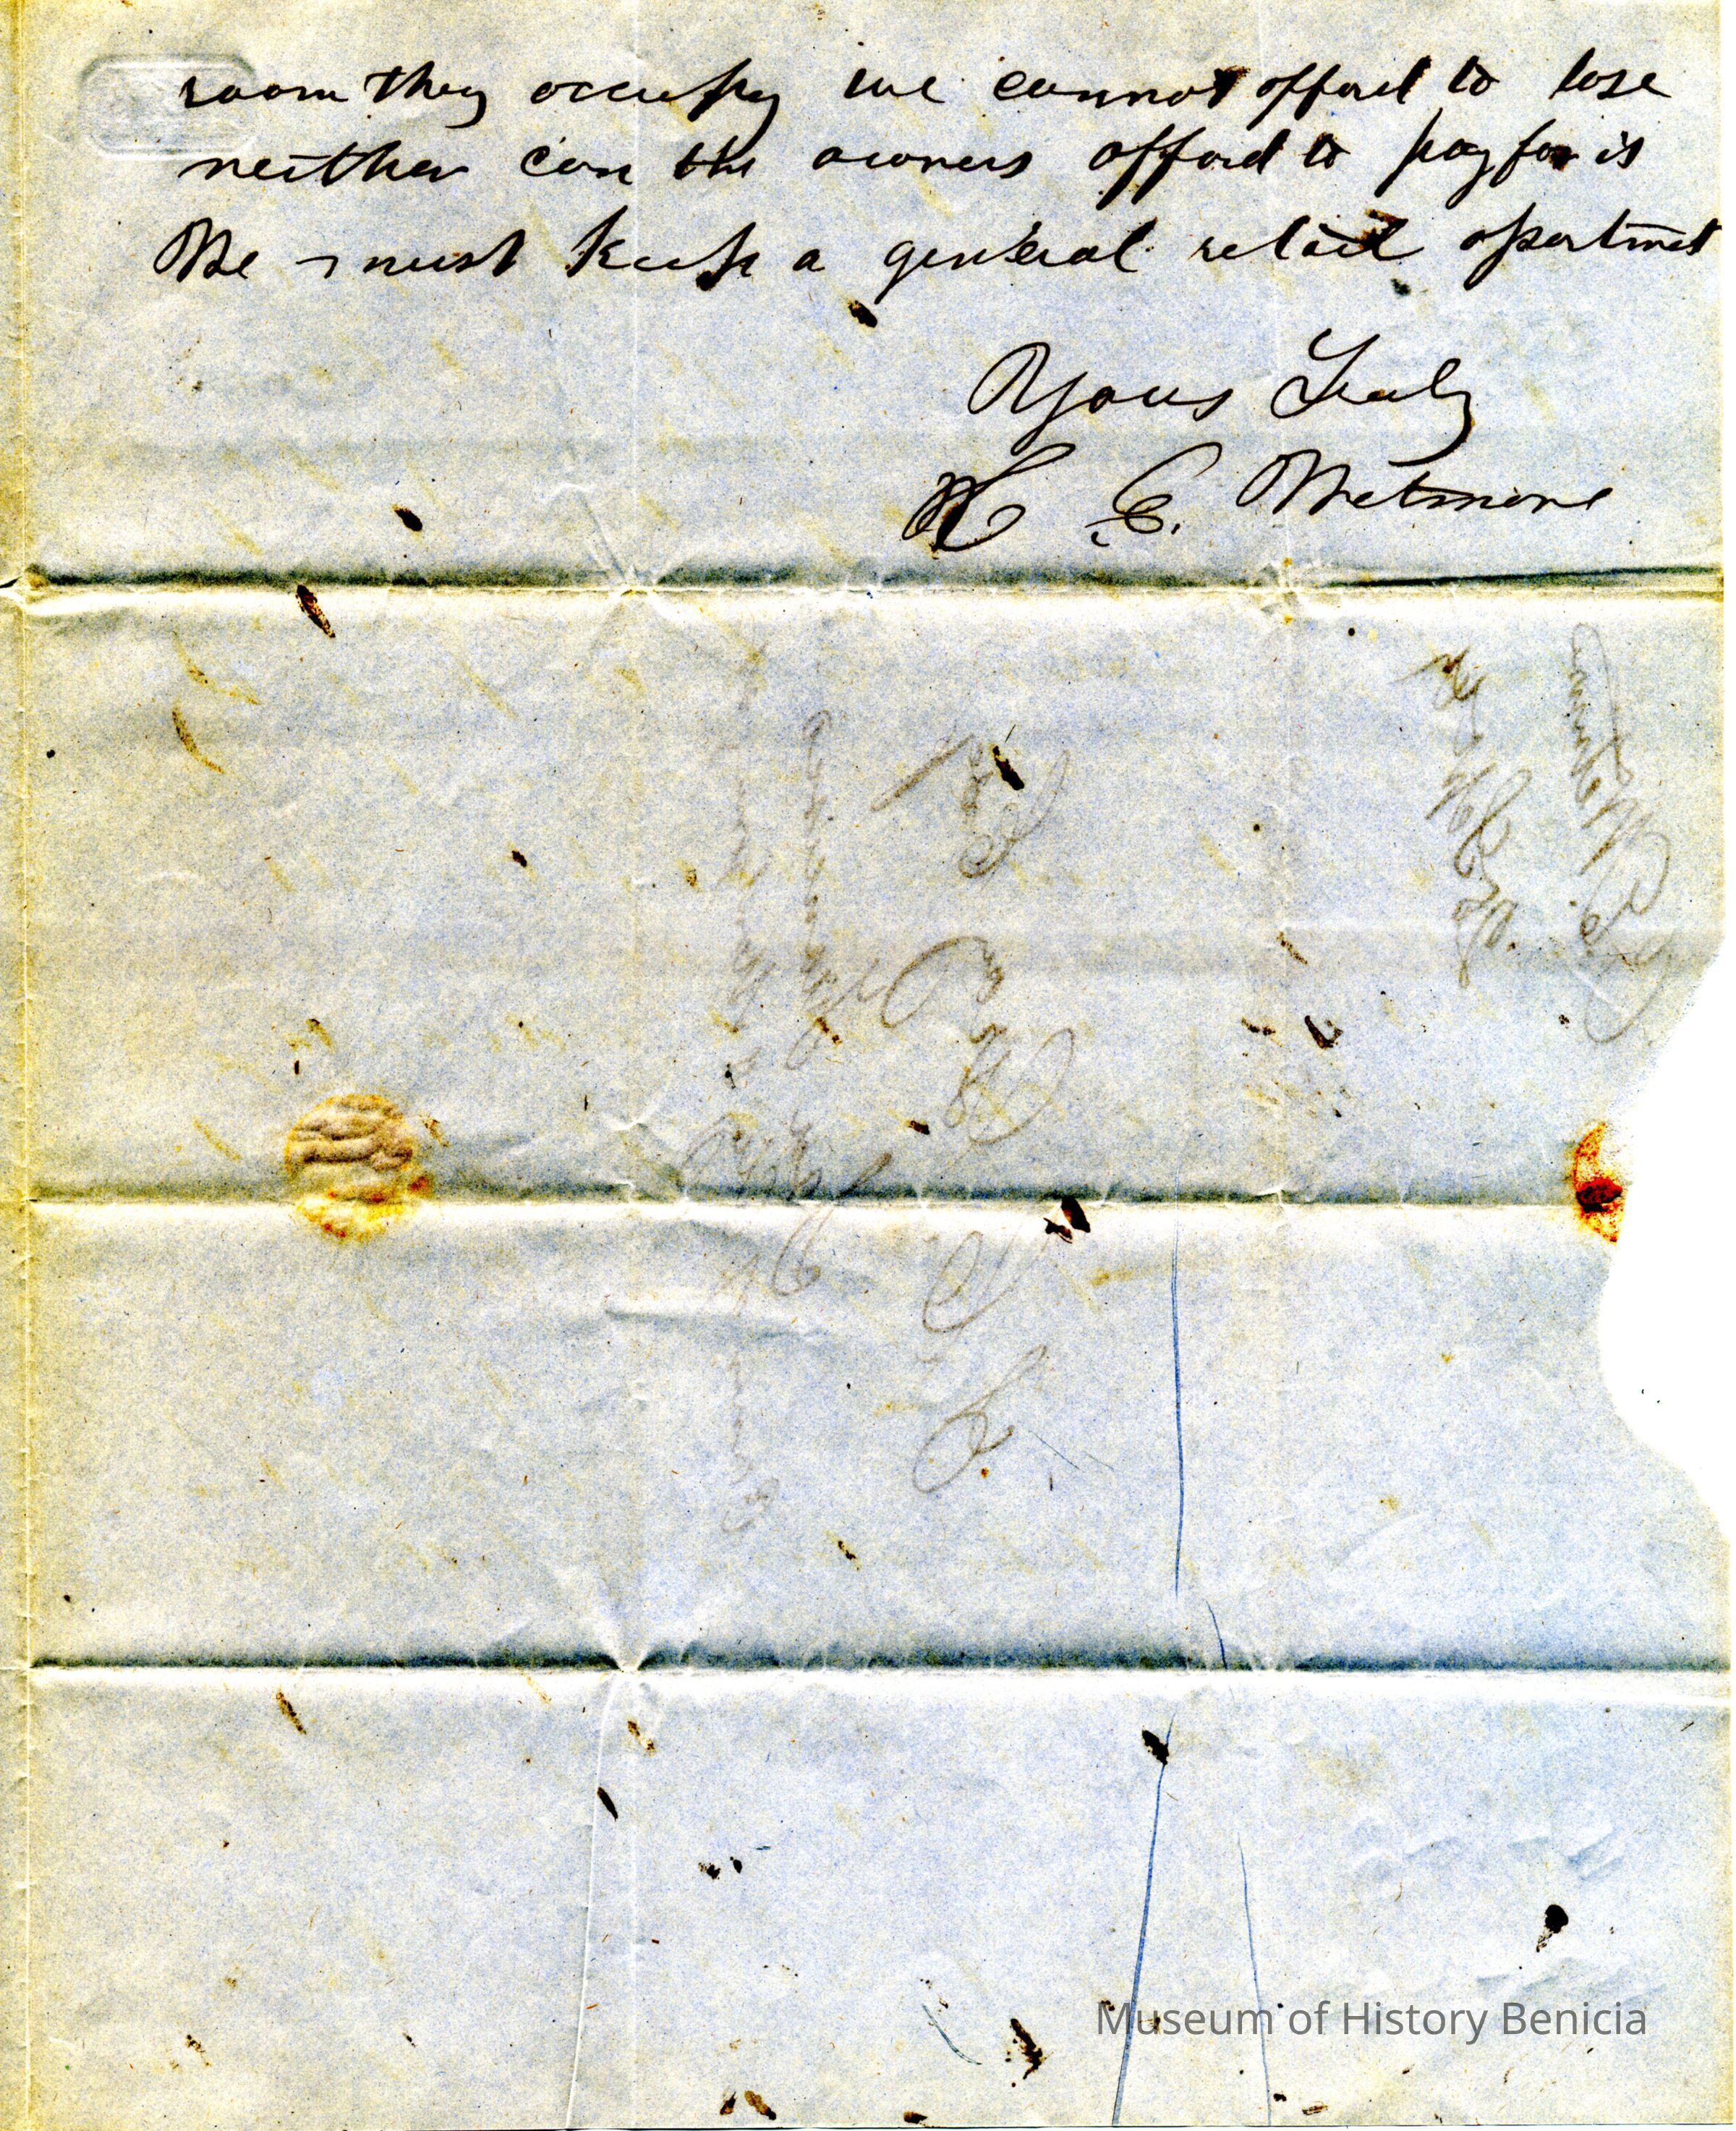 room they occupy we cannot afford to lose
neither can the owners afford to pay for is
We must keep a general retail apartmet
Yours Truly
H C. Wetmore
Museum of History Benicia